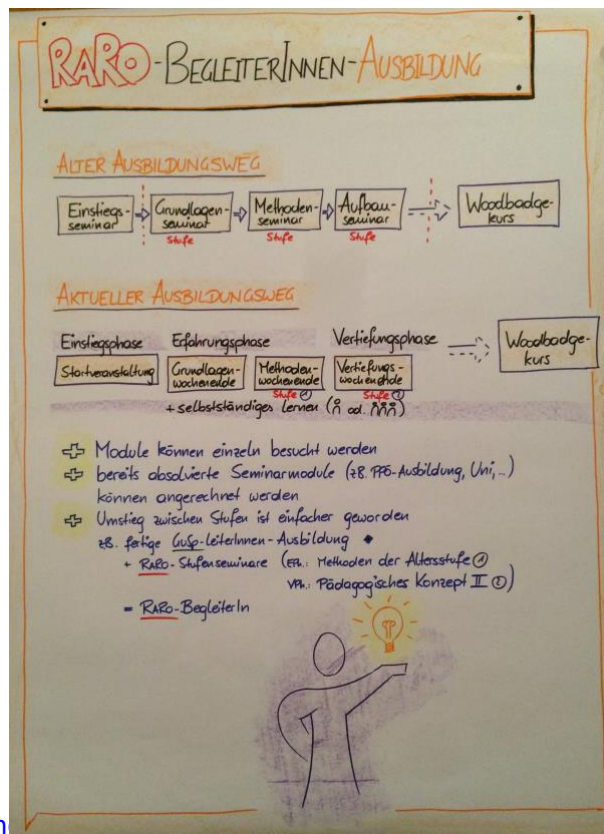 RARO-BEGLEITERINNEN-AUSBILDUNG
ALTER AUSBILDUNGSWEG
Einstiegs-
seminar
Grundlagen-
seminar
Stufe
Methoden-
seminar
Stufe
Aufbau-
seminar
Stufe
Woodbadge-
kurs
AKTUELLER AUSBILDUNGSWEG
Einstiegsphase Erfahrungsphase Vertiefungsphase
Startveranstaltung
Grundlagen-
wochenende
Methoden-
wochenende
Stufe ①
Vertiefungs-
wochenende
Stufe ②
Woodbadge-
kurs
+ selbstständiges Lernen ( od. )
Module können einzeln besucht werden
bereits absolvierte Seminarmodule (zB. PPÖ-Ausbildung, Uni,..)
können angerechnet werden
Umstieg zwischen Stufen ist einfacher geworden
zB. fertige GuSp-LeiterInnen-Ausbildung
+ RARO-Stufenseminare (EPh.: Methoden der Altersstufe ①
VPh.: Pädagogisches Konzept II ②)
= RARO-BegleiterIn